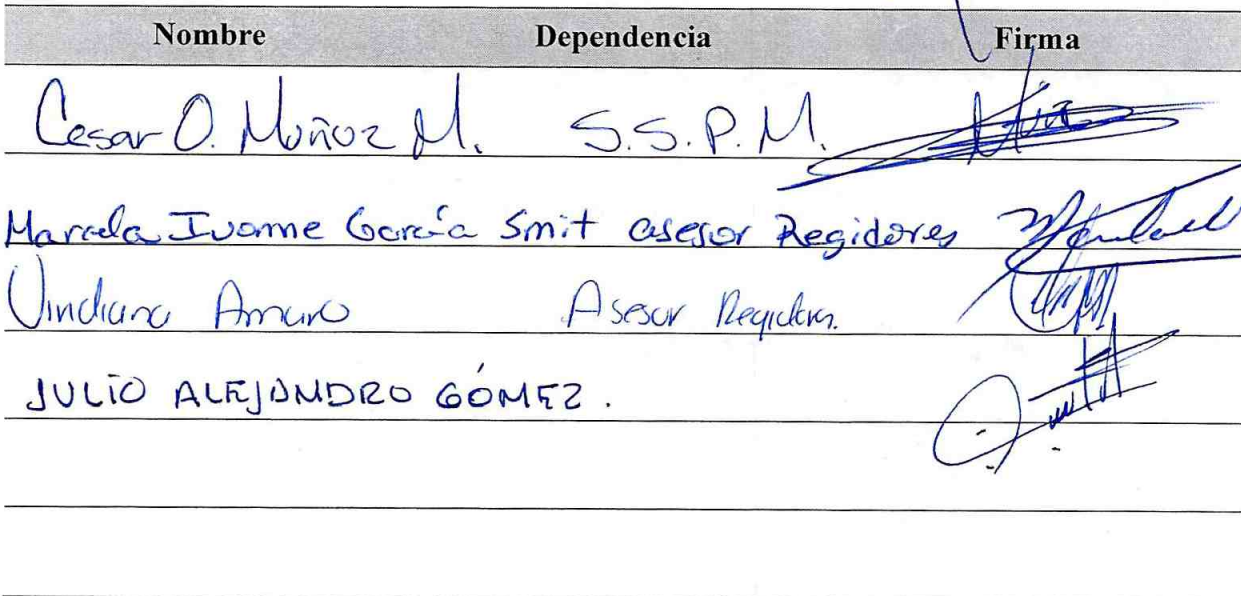 Nombre Dependencia Firma
Cesar O. Muñoz M. S.S.P.M.
Marcela Ivonne García Smit asesor Regidores
Amaro Asesor
JULIO ALEJANDRO GÓMEZ.